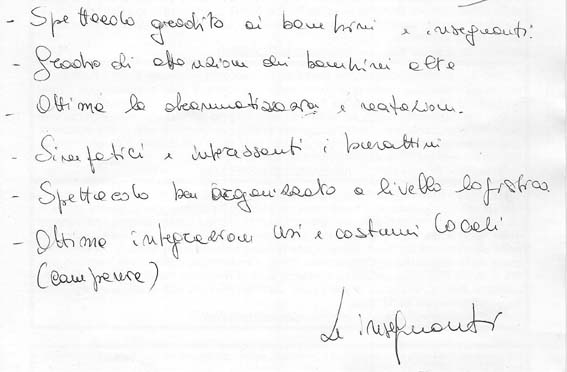 - Spettacolo gradito ai bambini e insegnanti.
- Grado di attenzione dei bambini alto
- Ottima la drammatizzazione e recitazione.
- Simpatici e interessanti i burattini
- Spettacolo ben organizzato a livello logistico
- Ottima integrazione usi e costumi locali
(campane)
Le insegnanti